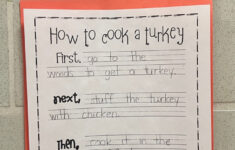 How to cook a turkey
First, go to the
woods to get a turkey.
Next, stuff the turkey
with chicken.
Then, cook it in the